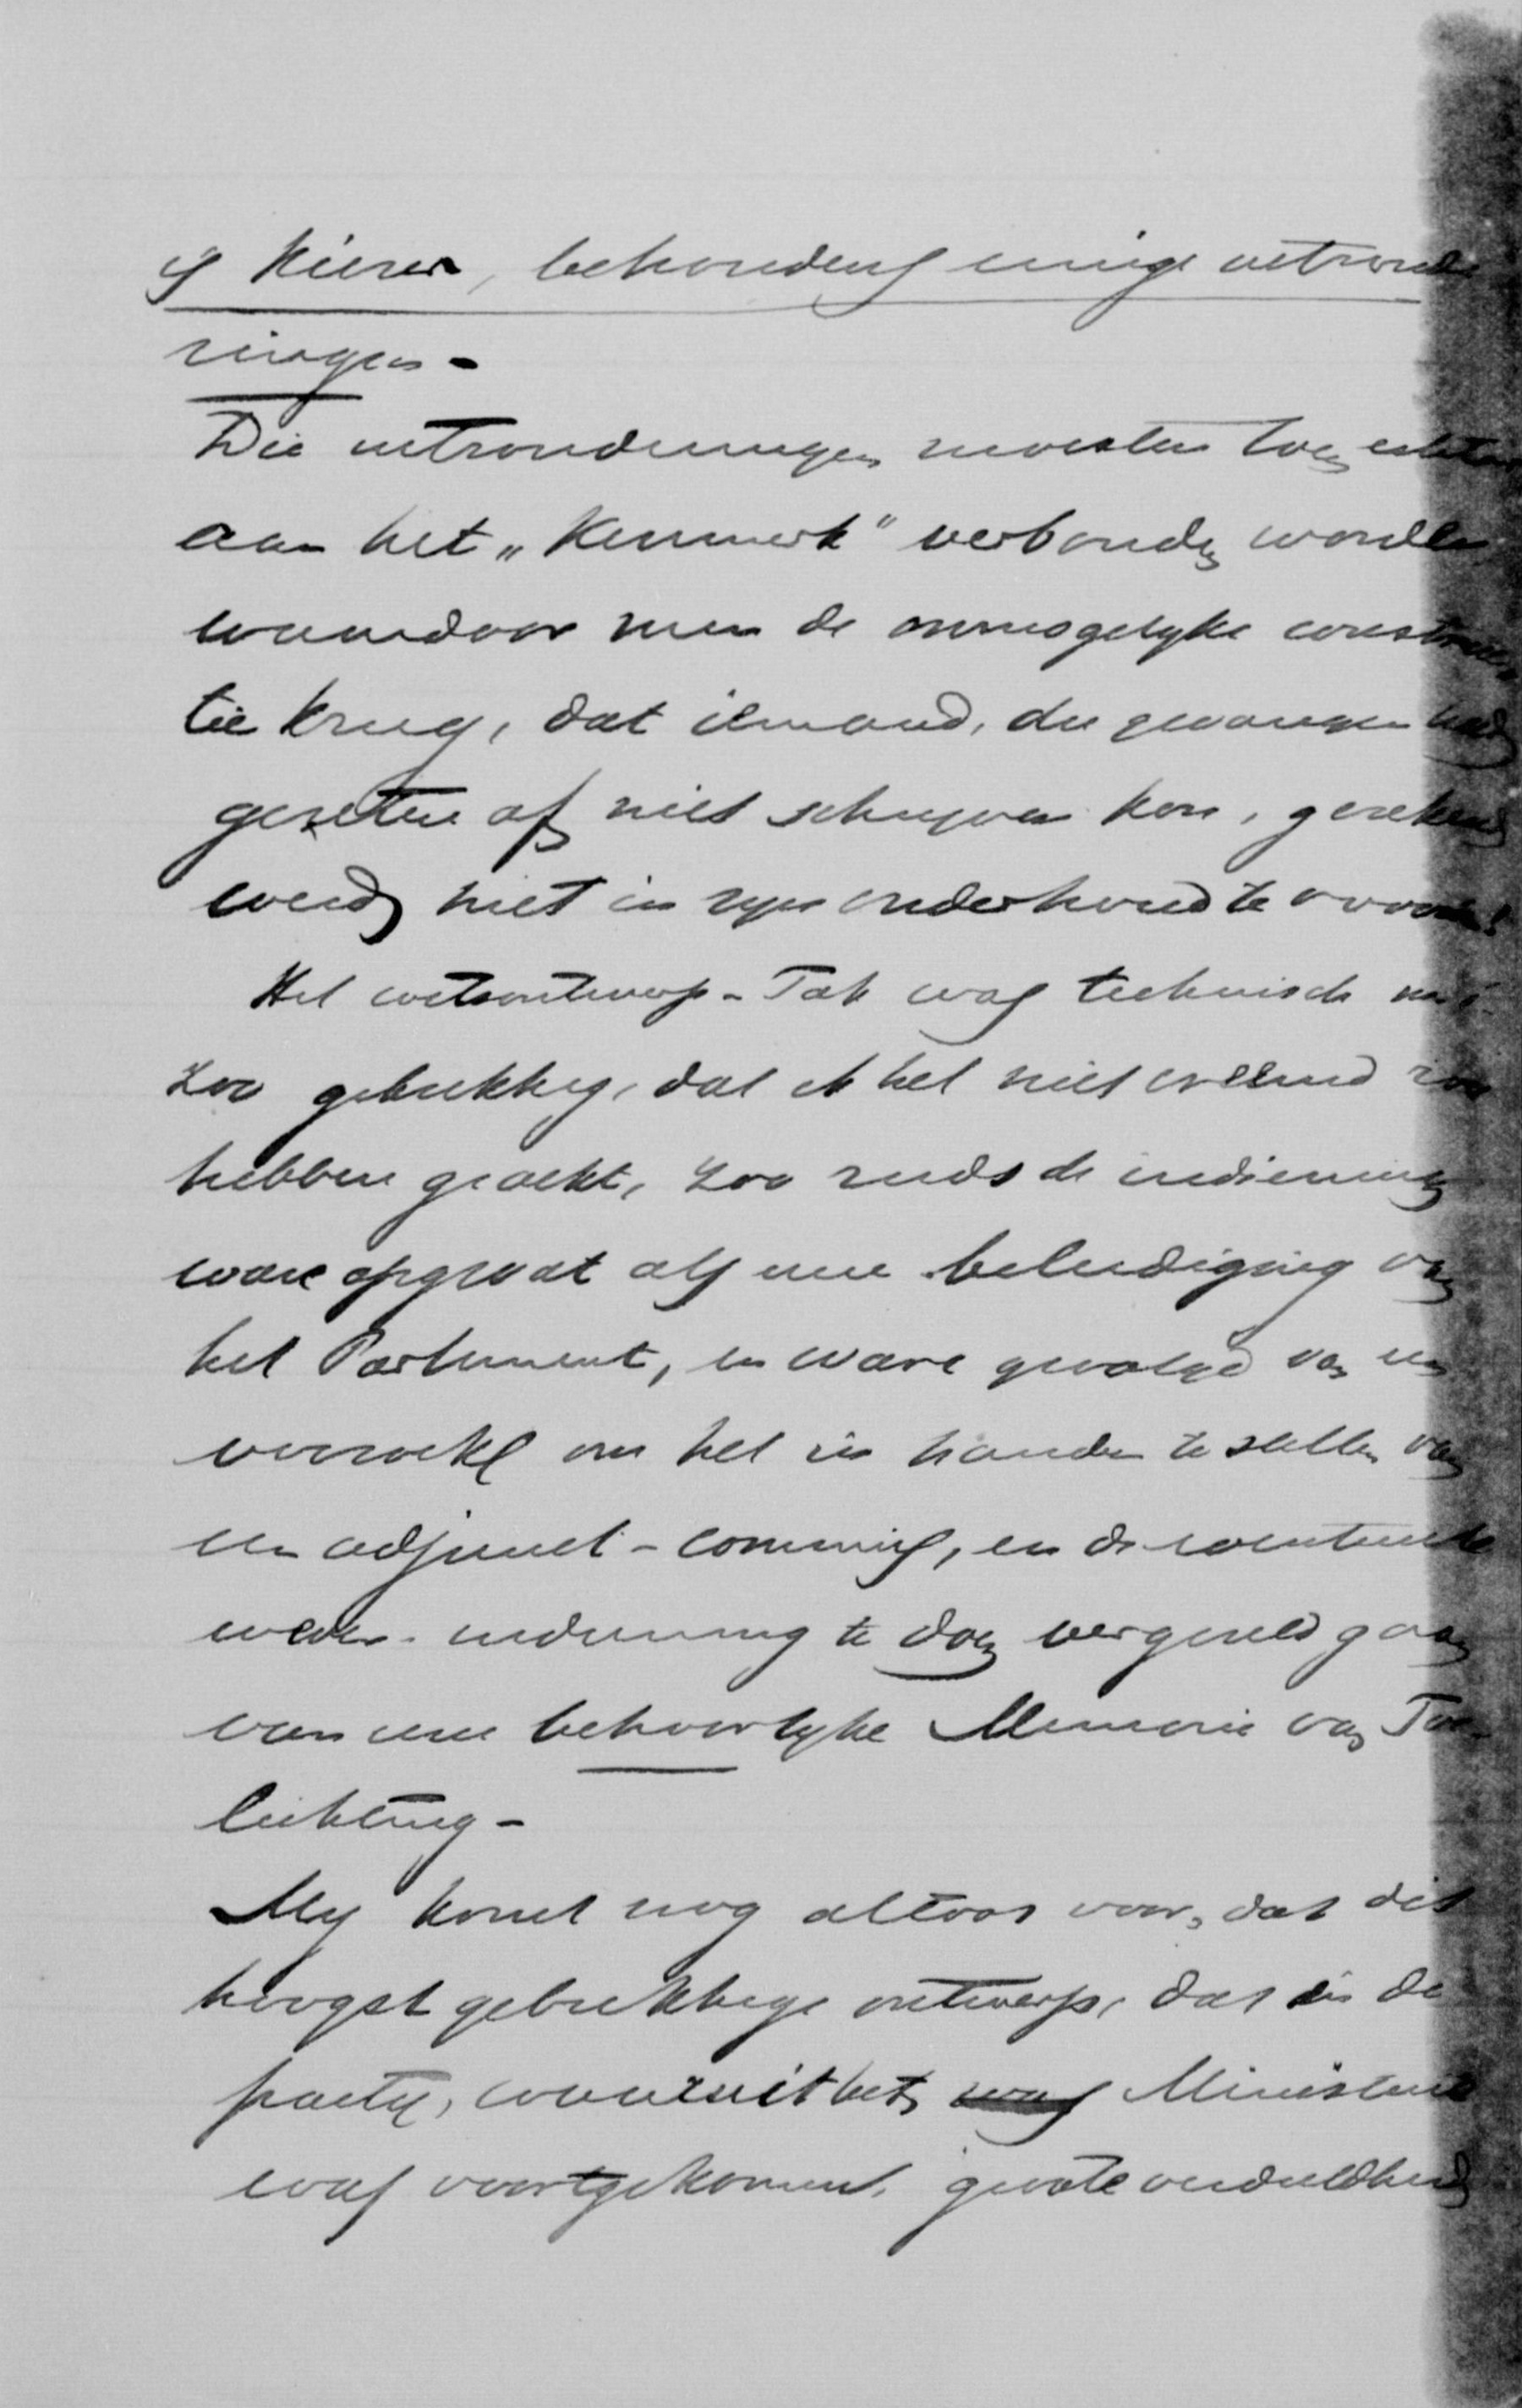 is kiezer, behoudens eenige uitzonde
ringen -
Die uitzonderingen moesten toen echter
aan het „Kenmerk" verbonden worden
waardoor men de onmogelyke construc
tie kreeg, dat iemand, die gevangen had
gezeten of niet schryven kon, gerekend
werd niet in zyn onderhoud te voorzien!
Het wetsontwerp-Tak was technisch
zoo gebrekkig, dat ik het niet vreemd zou
hebben geacht, zoo reeds de indiening
ware opgevat als eene beleediging van
het Parlement, en ware gevolgd van een
verzoek om het in handen te stellen van
een adjunct-commies, en de eventueele
weder-indiening te doen vergezeld gaan
van eene behoorlyke Memorie van Toe-
lichting -
My komt nog altoos voor, dat dit
hoogst gebrekkige ontwerp, dat in de
party, waaruit het Ministerie
was voortgekomen, groote verdeeldheid